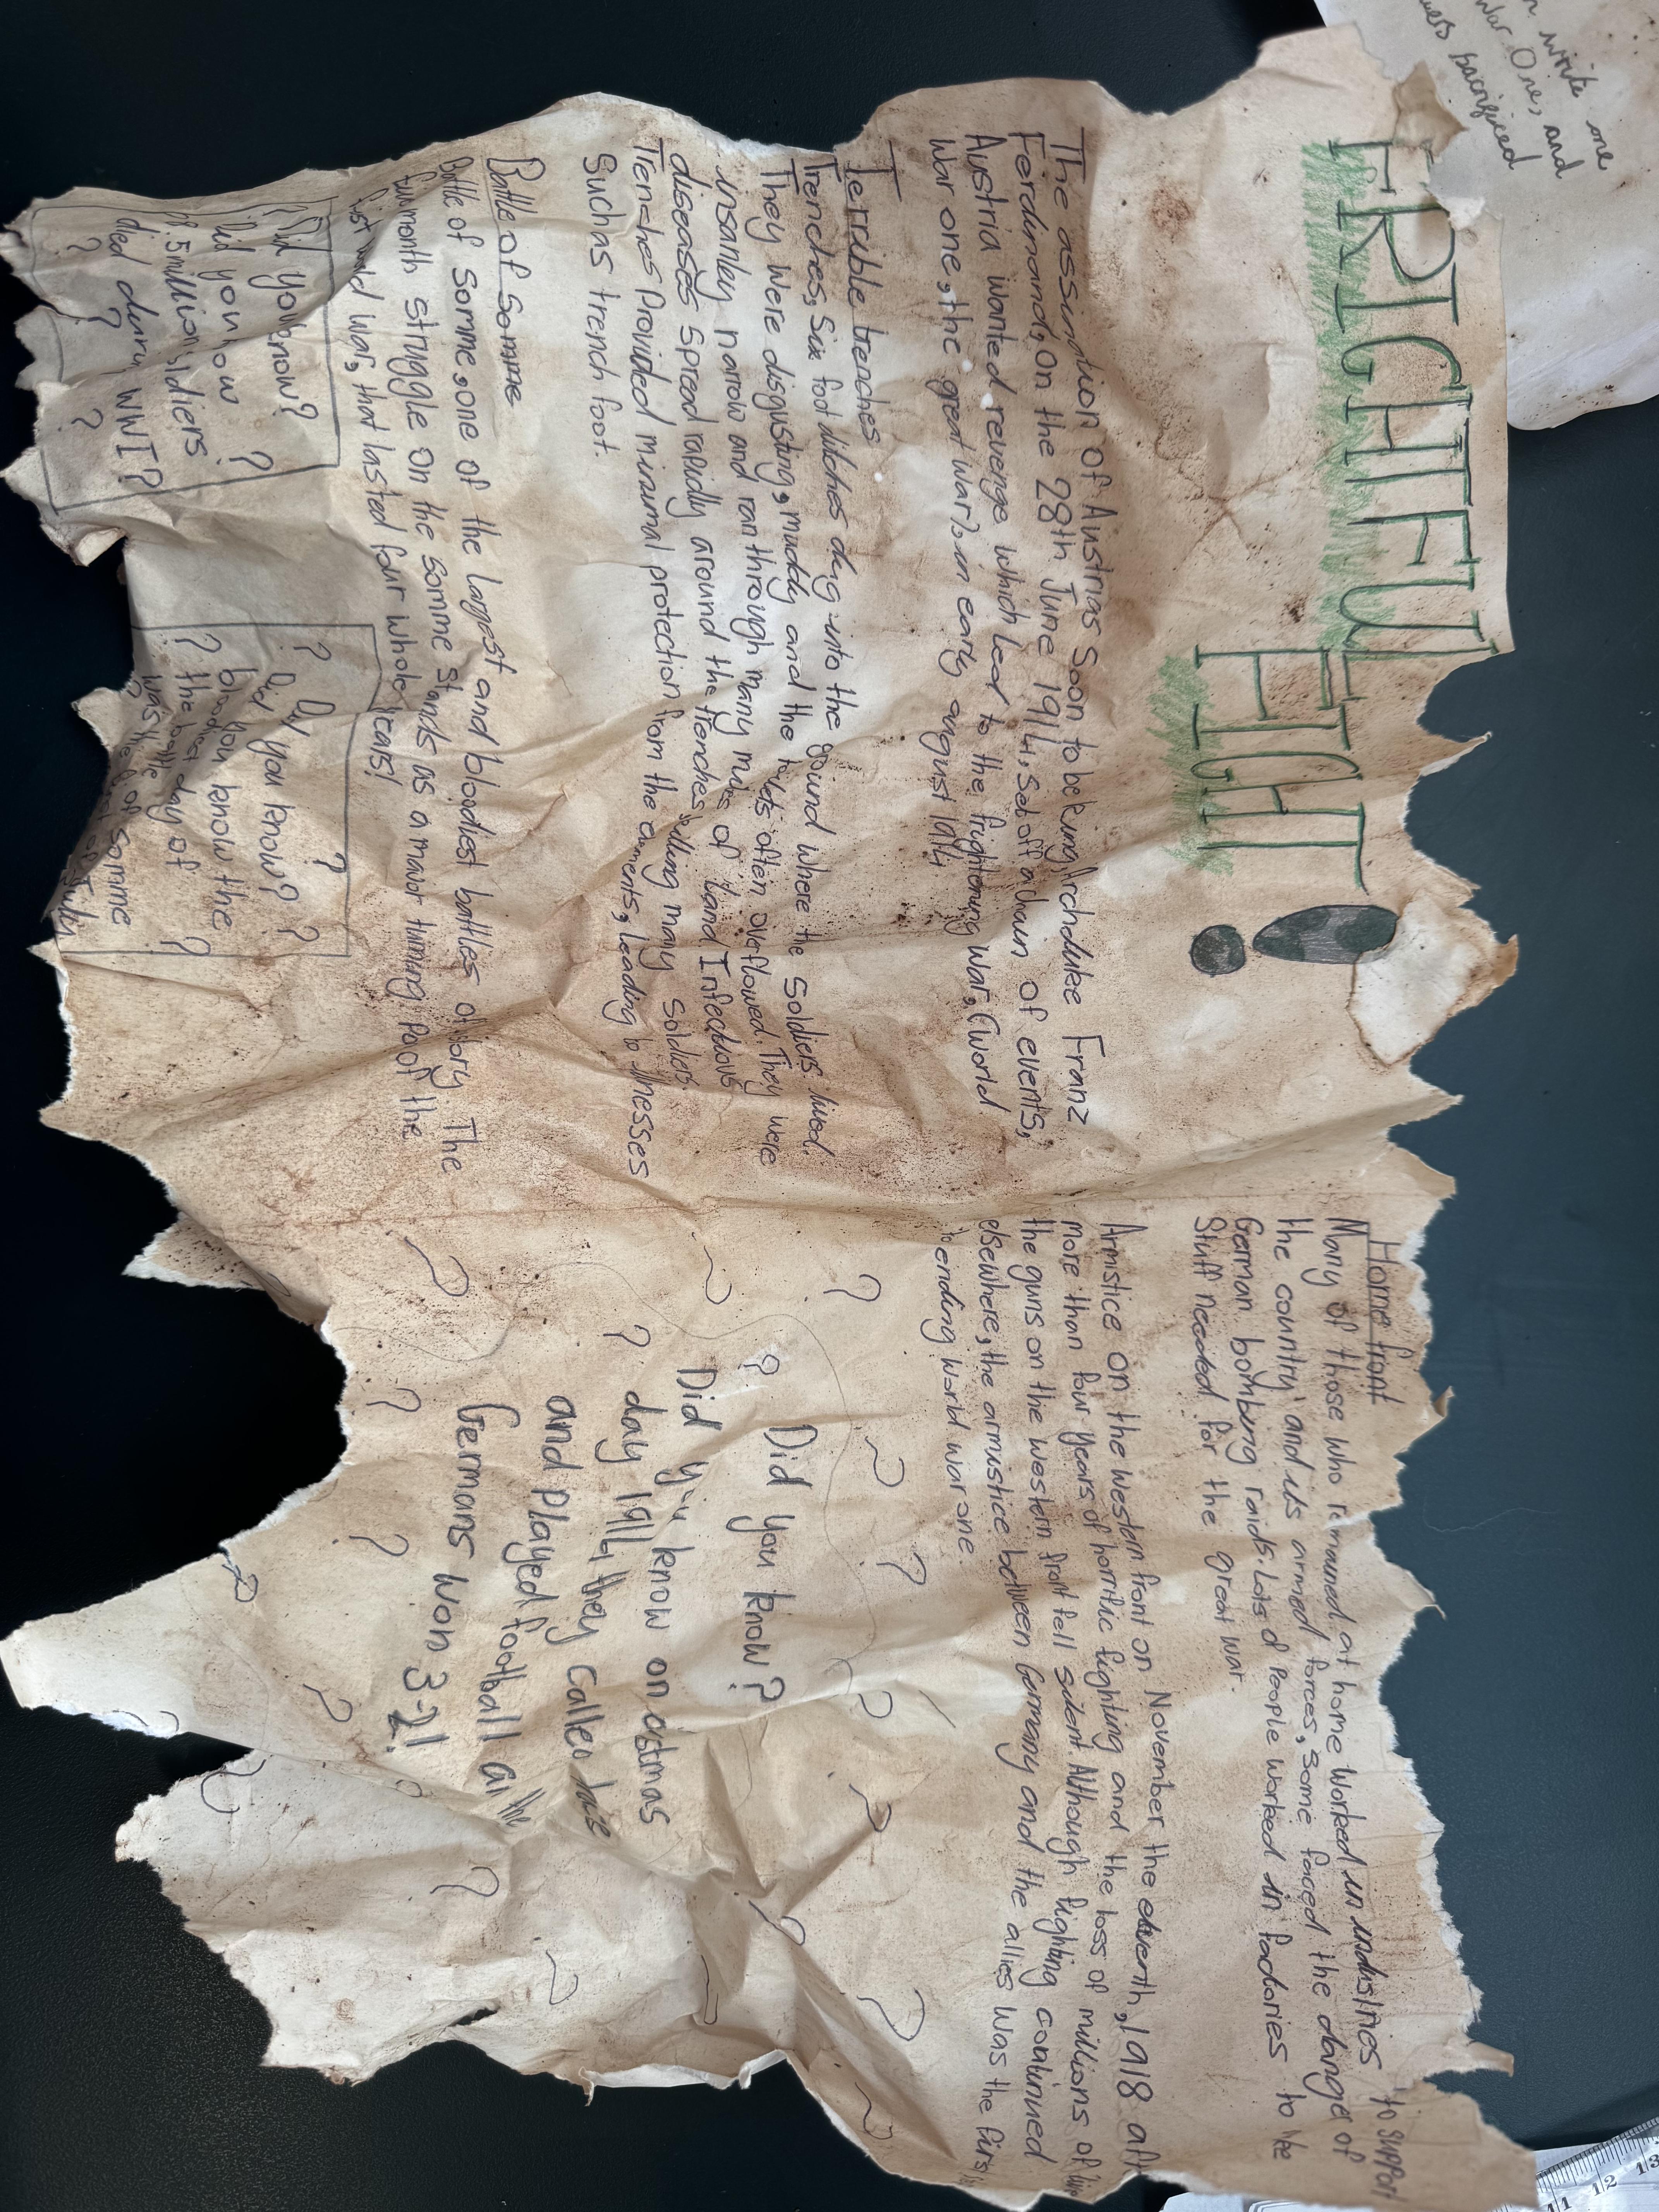 FRIGHTFUL
FIGHT!
The assination of Austrias Soon to be King, Archduke Franz
Ferdinand, On the 28th June 1914, Set off a chain of events,
Austria wanted revenge which Led to the frightening war, (World
War one, the great war), in early august 1914
Terrible trenches
Trenches, Six foot ditches dug into the ground where the Soldiers lived.
They were disgusting, muddy and the toilets often overflowed. They were
insanley narrow and ran through many miles of land Infectious
diseases Spread rapidly around the trenches killing many Soldiers.
Trenches Provided minimal protection from the elements, Leading to illnesses
Such as trench foot.
Battle of Somme
Battle of Somme, one of the largest and bloodiest battles of The
five month Struggle On the Somme Stands as a major turning of the
first world war, that lasted four whole years!
? Did you know?
Did you know ?
8.5 million soldiers
died during WWI?
? ? ?
? Did you know? ?
Did you know the ?
? bloodiest day of ?
the battle of Somme
was the of July
Home front
Many of those who remained at home Worked in industries to support
the country and its armed forces, Some faced the danger of
German bombing raids. Lots of People worked in factories to
Stuff needed for the great war.
Armistice on the western front on November the eleventh, 1918
more than four years of horrific fighting and the loss of millions of
the guns on the western front fell silent. Although fighting continued
elsewhere, the armistice between Germany and the allies Was the first
to ending World War one.
? Did you know?
Did you know on
? day 1914 they Called
and Played football and the
Germans won 3-2!
write one
War One, and
sacrificed
11 12 13